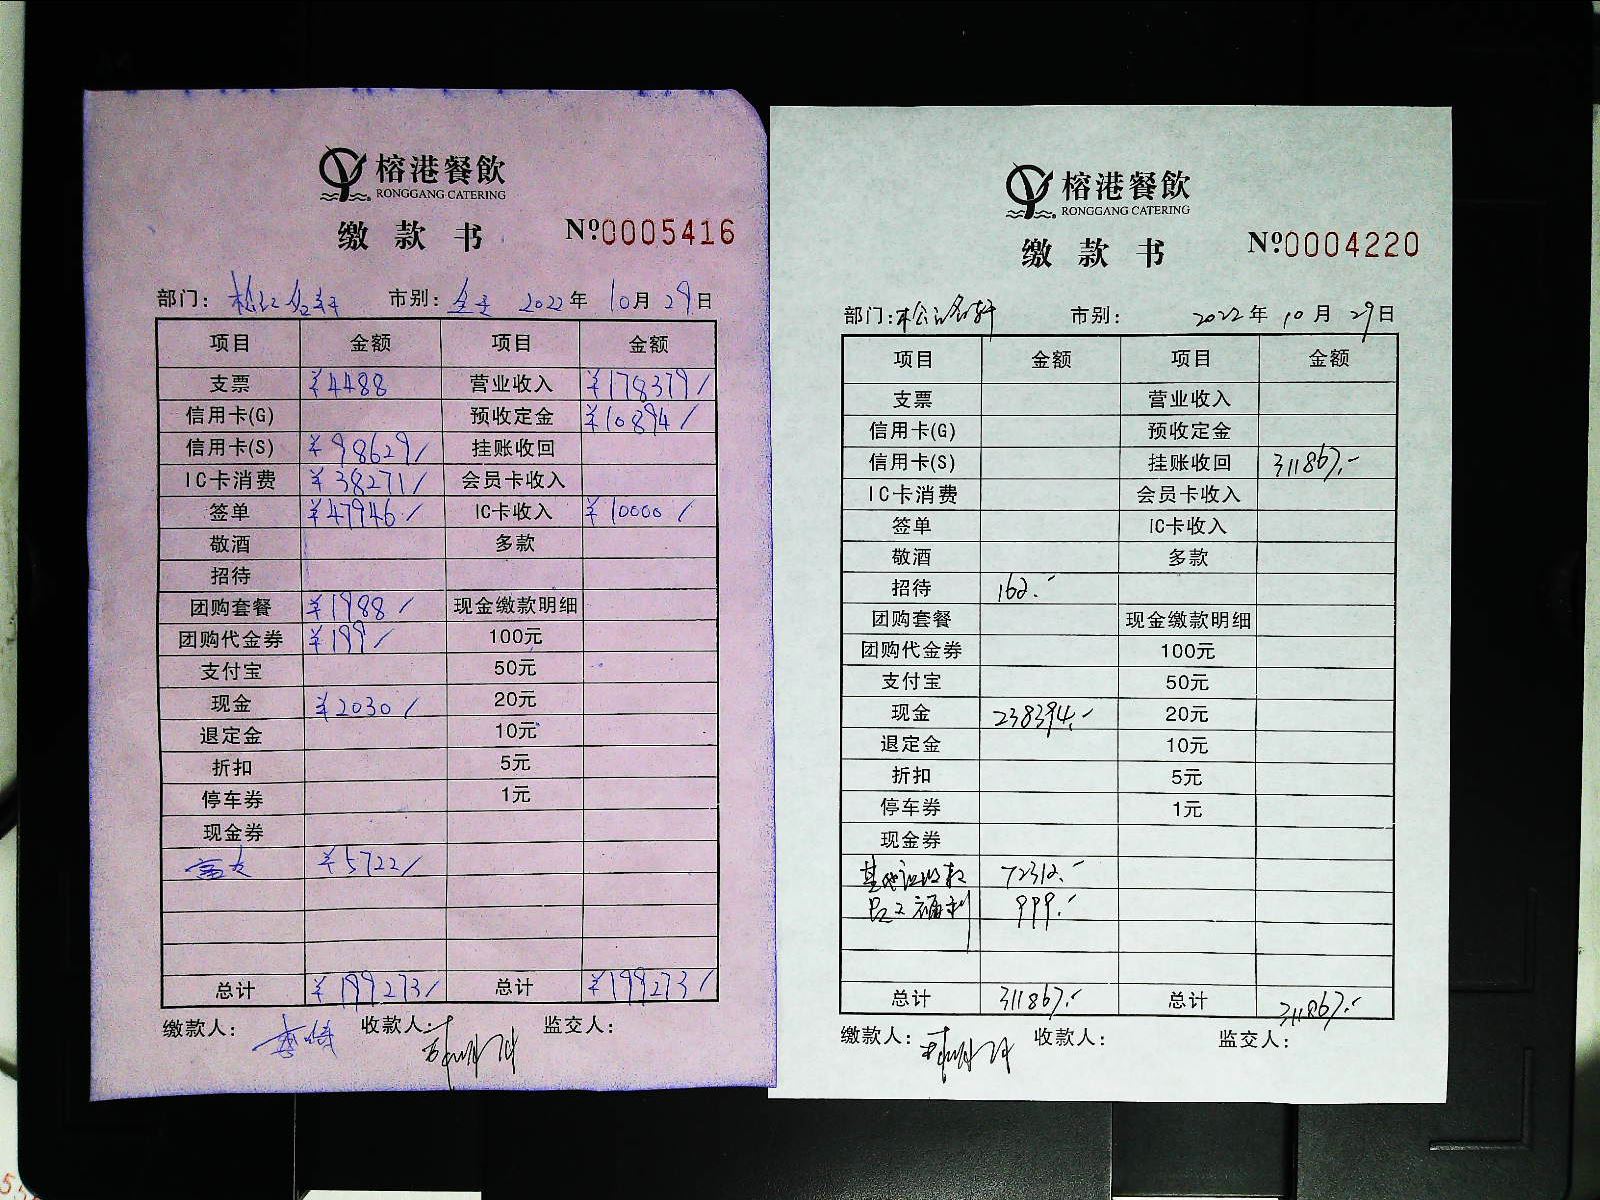 榕港餐飲
RONGGANG CATERING
缴款书 №0005416
部门：松江名轩 市别：全天 2022年10月29日
项目 金额 项目 金额
支票 ¥4488 营业收入 ¥178379/
信用卡(G) 预收定金 ¥10894/
信用卡(S) ¥98629/ 挂账收回
IC卡消费 ¥38271/ 会员卡收入
签单 ¥47946/ IC卡收入 ¥10000/
敬酒 多款
招待
团购套餐 ¥1988/ 现金缴款明细
团购代金券 ¥199/ 100元
支付宝 50元
现金 ¥2030/ 20元
退定金 10元
折扣 5元
停车券 1元
现金券
¥5722/
总计 ¥199273/ 总计 ¥199273/
缴款人： 收款人： 监交人：
榕港餐飲
RONGGANG CATERING
缴款书 №0004220
部门：松江名轩 市别： 2022年10月29日
项目 金额 项目 金额
支票 营业收入
信用卡(G) 预收定金
信用卡(S) 挂账收回 311867.-
IC卡消费 会员卡收入
签单 IC卡收入
敬酒 多款
招待 162.-
团购套餐 现金缴款明细
团购代金券 100元
支付宝 50元
现金 238394.- 20元
退定金 10元
折扣 5元
停车券 1元
现金券
72312.-
员工福利 999.-
总计 311867.- 总计 311867.-
缴款人： 收款人： 监交人：